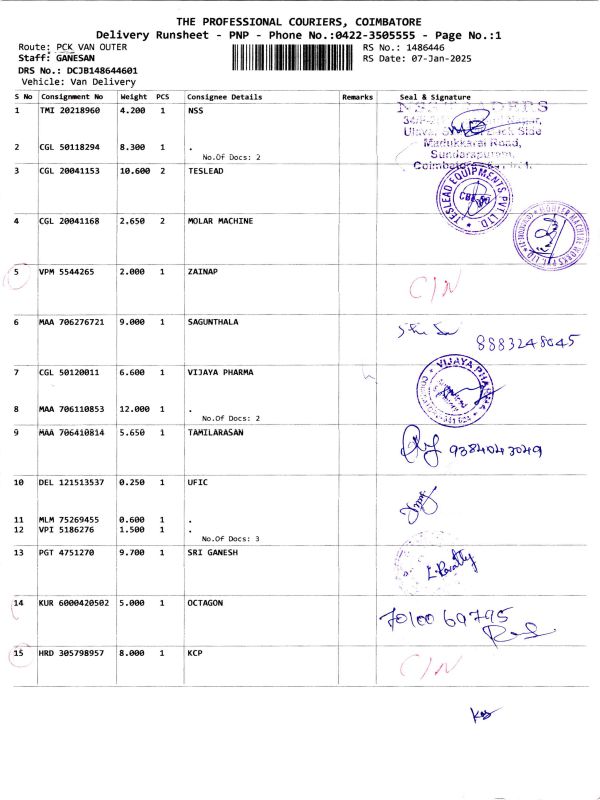 THE PROFESSIONAL COURIERS, COIMBATORE
Delivery Runsheet - PNP - Phone No.:0422-3505555 - Page No.:1
Route: PCK VAN OUTER RS No.: 1486446
Staff: GANESAN RS Date: 07-Jan-2025
DRS No.: DCJB148644601
Vehicle: Van Delivery
S No Consignment No Weight PCS Consignee Details Remarks Seal & Signature
1 TMI 20218960 4.200 1 NSS
Madukkarai Road,
Sundarapuram,
2 CGL 50118294 8.300 1 .
No.Of Docs: 2
3 CGL 20041153 10.600 2 TESLEAD
TESLEAD EQUIPMENTS PVT LTD
4 CGL 20041168 2.650 2 MOLAR MACHINE
5 VPM 5544265 2.000 1 ZAINAP C/N
6 MAA 706276721 9.000 1 SAGUNTHALA 8883248045
7 CGL 50120011 6.600 1 VIJAYA PHARMA
VIJAYA PHARMA
8 MAA 706110853 12.000 1 .
No.Of Docs: 2
9 MAA 706410814 5.650 1 TAMILARASAN 9384043049
10 DEL 121513537 0.250 1 UFIC
11 MLM 75269455 0.600 1 .
12 VPI 5186276 1.500 1 .
No.Of Docs: 3
13 PGT 4751270 9.700 1 SRI GANESH
14 KUR 6000420502 5.000 1 OCTAGON 7010069795
15 HRD 305798957 8.000 1 KCP C/N